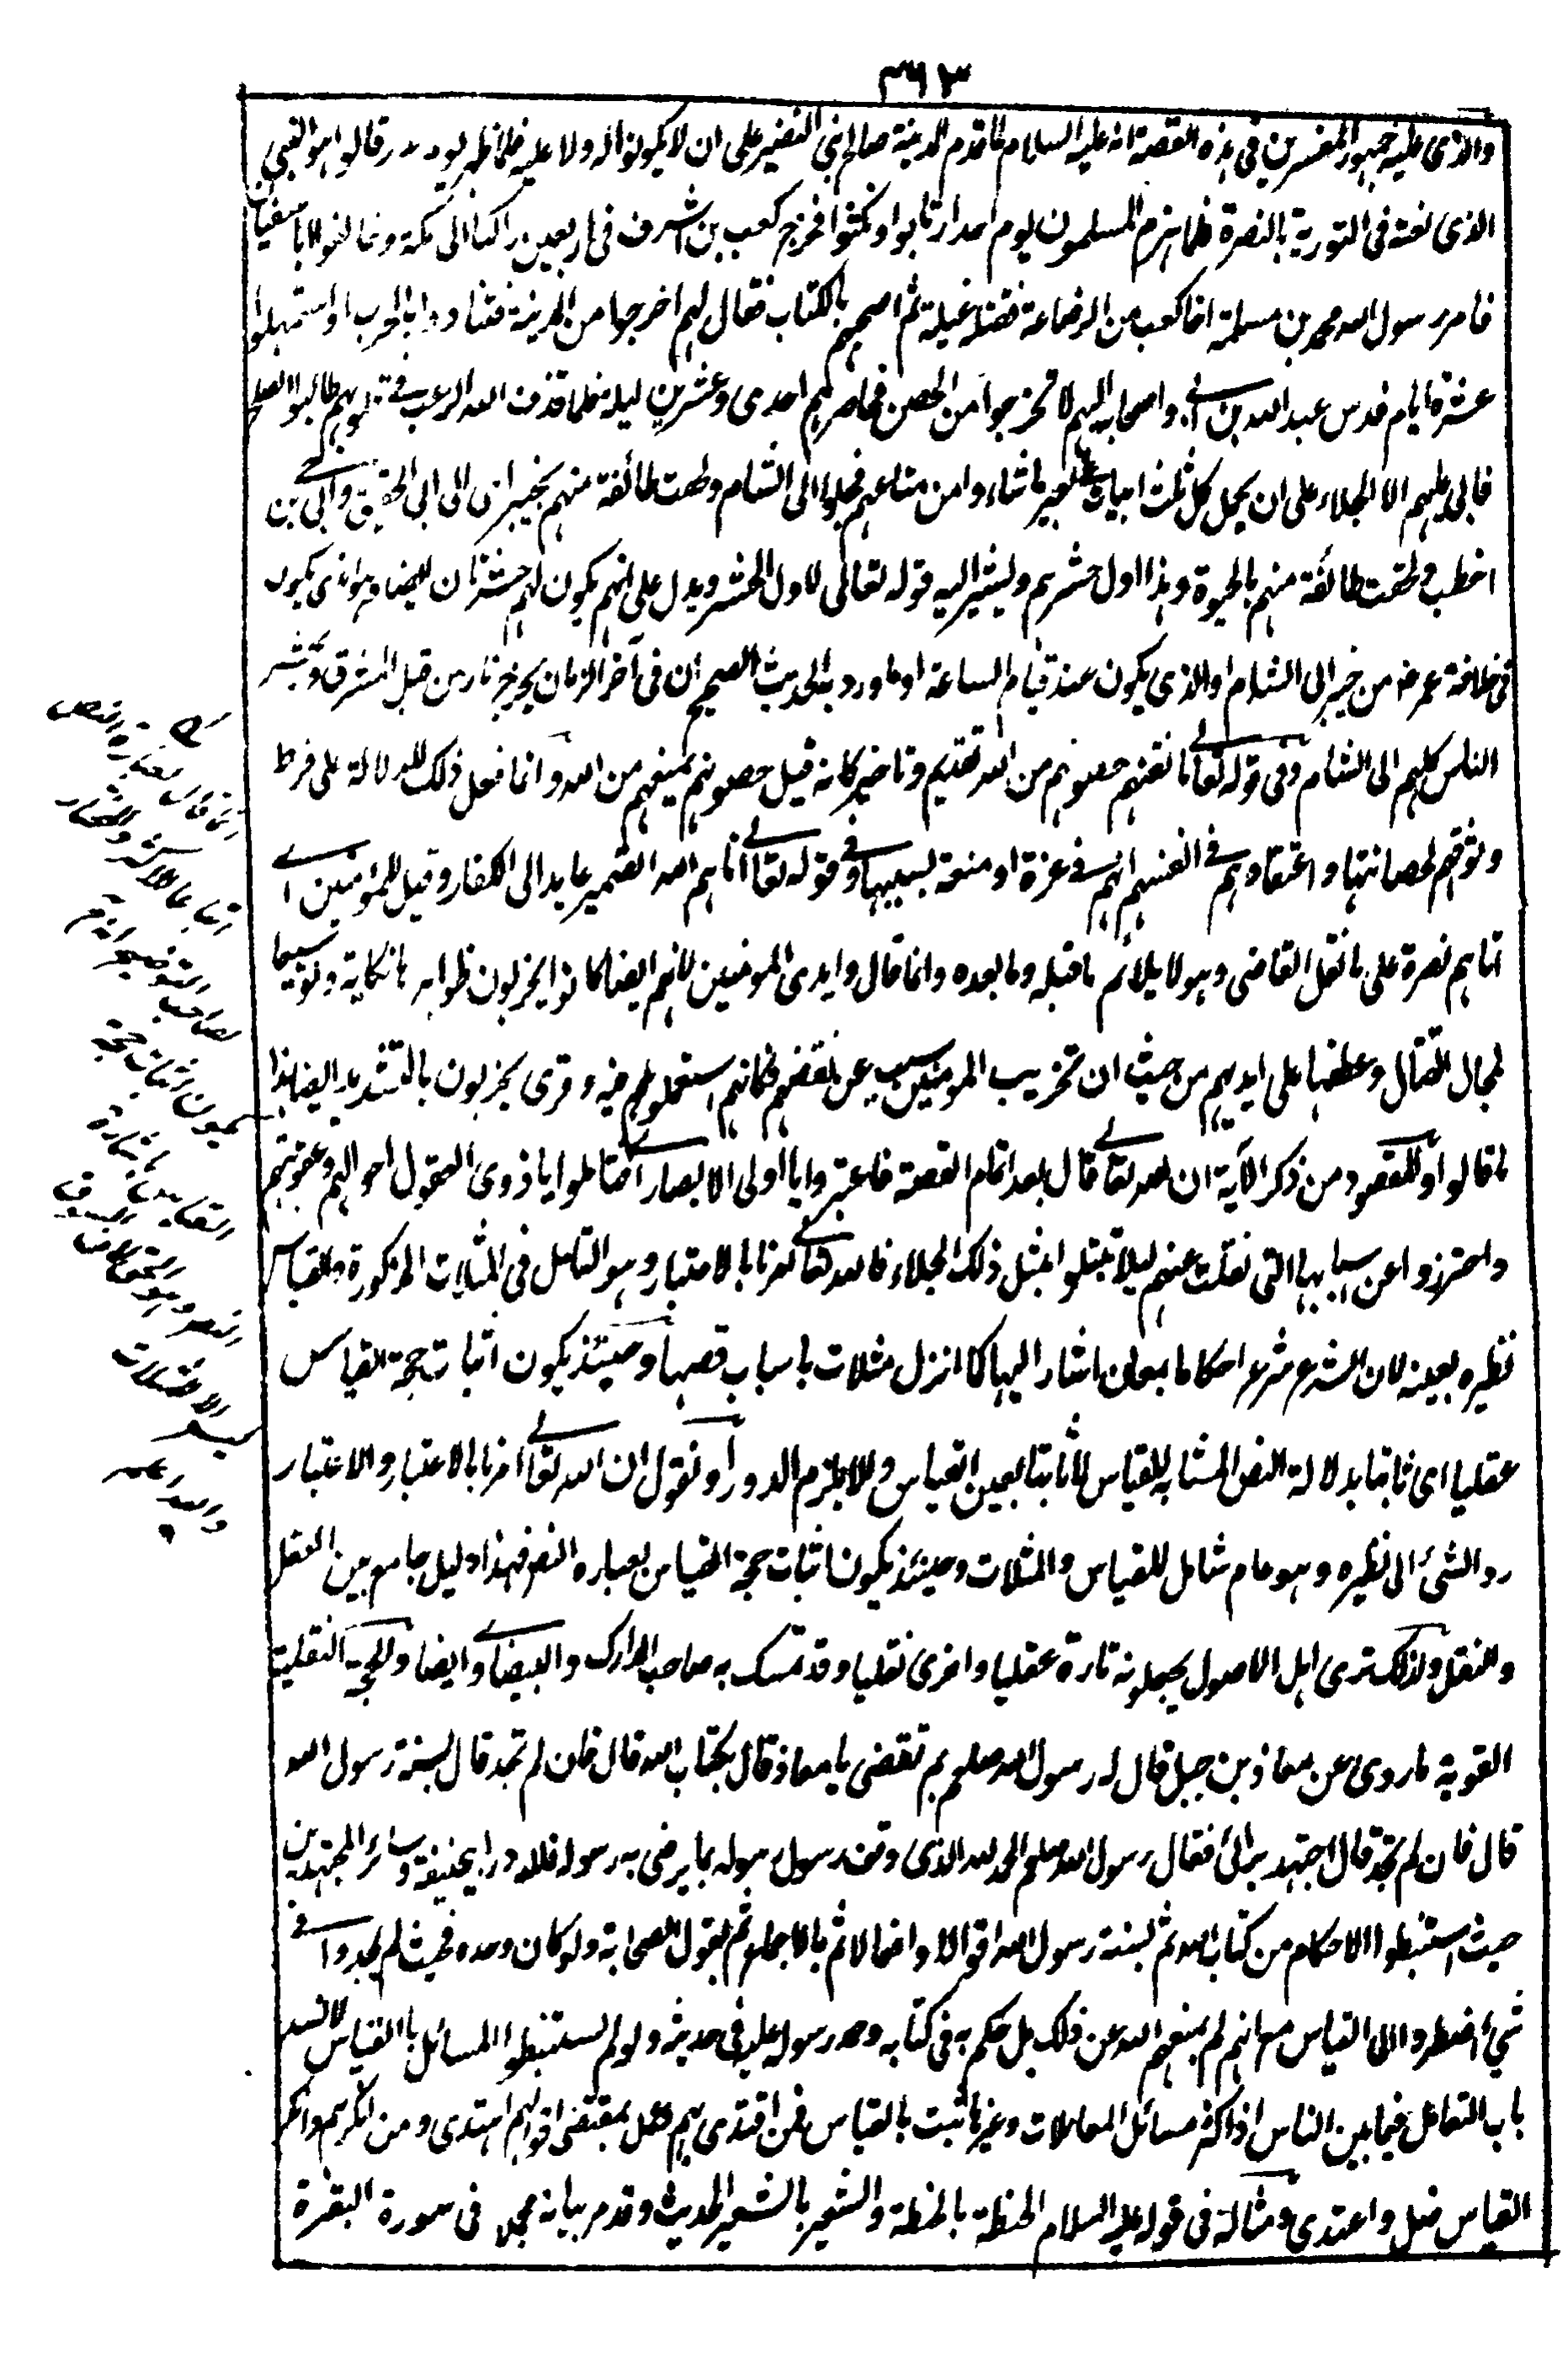 ٣٦٣
والذى عليه جمهور المفسرين فى هذه القصة انه عليه السلام لما قدم المدينة صالح بنى النضير على ان لا يكونوا له ولا عليه فلما ظهر يوم بدر قالوا هو النبى
الذى نعته فى التورية بالنصرة فلما هزم المسلمون يوم احد ارتابوا ونكثوا فخرج كعب بن اشرف فى اربعين راكبا الى مكة وخالفوا ابا سفيان
فامر رسول الله محمد بن مسلمة اخا كعب من الرضاعة فقتله غيلة ثم اصبحهم بالكتاب فقال لهم اخرجوا من المدينة فتنادوا بالحرب او استمهلوا
عشرة ايام فدس عبد الله بن ابى واصحابه اليهم لا تخرجوا من الحصن فحاصرهم احدى وعشرين ليلة فلما قذف الله الرعب فى قلوبهم طلبوا الصلح
فابى عليهم الا الجلاء على ان يحمل كل ثلث ابيات على بعير ما شاءوا من متاعهم فجلوا الى الشام ولحقت طائفة منهم بخيبر ال ابى الحقيق وآل حيى بن
اخطب ولحقت طائفة منهم بالحيرة وهذا اول حشرهم ويشير اليه قوله تعالى لاول الحشر ويدل على انهم يكون لهم حشر ثان ايضا وهو الذى يكون
فى خلافة عمر رض من خيبر الى الشام او الذى يكون عند قيام الساعة او ما ورد به الحديث الصحيح ان فى آخر الزمان يخرج نار من قبل المشرق وتحشر
الناس كلهم الى الشام وفى قوله تعالى مانعتهم حصونهم من الله تقديم وتاخير كانه قيل حصونهم تمنعهم من الله وانما فعل ذلك للدلالة على فرط
وثوقهم بحصانتها واعتقادهم فى انفسهم انهم فى عزة او منعة بسببها وفى قوله تعالى اتاهم الله الضمير عايد الى الكفار وقيل للمؤمنين اى
اتاهم نصرة على ما نقل القاضى وهو لا يلائم ما قبله وما بعده وانما قال وايدى المومنين لانهم ايضا كانوا يخربون ظواهرها نكاية وتوسيعا
لمجال القتال وعطفها على ايديهم من حيث ان تخريب المومنين مسبب عن نقضهم فكانهم استعملوهم فيه وقرى يخربون بالتشديد ايضا هذا
ما قالوا والمقصود من ذكر الآية ان الله تعالى قال بعد اتمام القصة فاعتبروا يا اولى الابصار اى فتاملوا يا ذوى العقول احوالهم وعقوبتهم
واحترزوا عن اسبابها التى نقلت عنهم ليلا تبتلوا بمثل ذلك الجلاء فالله تعالى امرنا بالاعتبار وهو التامل فى المثلات المذكورة والقياس
نظيره بعينه لان الشرع شرع احكاما بمعان اشار اليها كما انزل مثلات باسباب قصها وحينئذ يكون اثبات حجة القياس
عقليا اى ثابتا بدلالة النص المشابه للقياس لا ثابتا بعين القياس والا يلزم الدور او نقول ان الله تعالى امرنا بالاعتبار والاعتبار
رد الشئ الى نظيره وهو عام شامل للقياس والمثلات وحينئذ يكون اثبات حجة القياس بعبارة النص فهذا دليل جامع بين العقل
والنقل ولذلك ترى اهل الاصول يجعلونه تارة عقليا واخرى نقليا وقد تمسك به صاحب المدارك والبيضاوى ايضا والحجة النقلية
القوية ما روى عن معاذ بن جبل قال له رسول الله صلعم بم تقضى يا معاذ قال بكتاب الله قال فان لم تجد قال بسنة رسول الله
قال فان لم تجد قال اجتهد برائى فقال رسول الله صلعم الحمد لله الذى وفق رسول رسوله بما يرضى به رسوله فلله در ابى حنيفة وسائر المجتهدين
حيث استنبطوا الاحكام من كتاب الله ثم بسنة رسول الله اقوالا وافعالا ثم بالاجماع ثم بقول الصحابة ولو كان وحده فحيث لم يجدوا فى
شئ اضطروا الى القياس مع انهم لم يمنعهم الله عن ذلك بل حكم به فى كتابه وحمد رسوله عليه فى حديثه ولو لم يستنبطوا المسائل بالقياس لانسد
باب التعامل فيما بين الناس اذ اكثر مسائل المعاملات وغيرها ثبت بالقياس فمن اقتدى بهم وعمل بمقتضى اقوالهم اهتدى ومن انكرهم وانكر
القياس ضل واعتدى ومثاله فى قوله عليه السلام الحنطة بالحنطة والشعير بالشعير الحديث وقد مر بيانه مجملا فى سورة البقرة
انما قال بعبارة النص
لصاحب التوضيح
يكون اثبات حجة
القياس باشارة
النص
والله اعلم